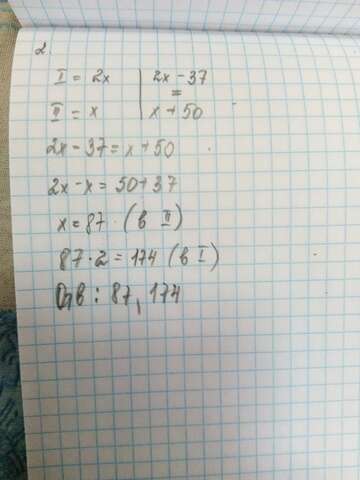 2.
I = 2x | 2x - 37
=
II = x | x + 50
2x - 37 = x + 50
2x - x = 50 + 37
x = 87 (в II)
87 · 2 = 174 (в I)
Отв: 87, 174